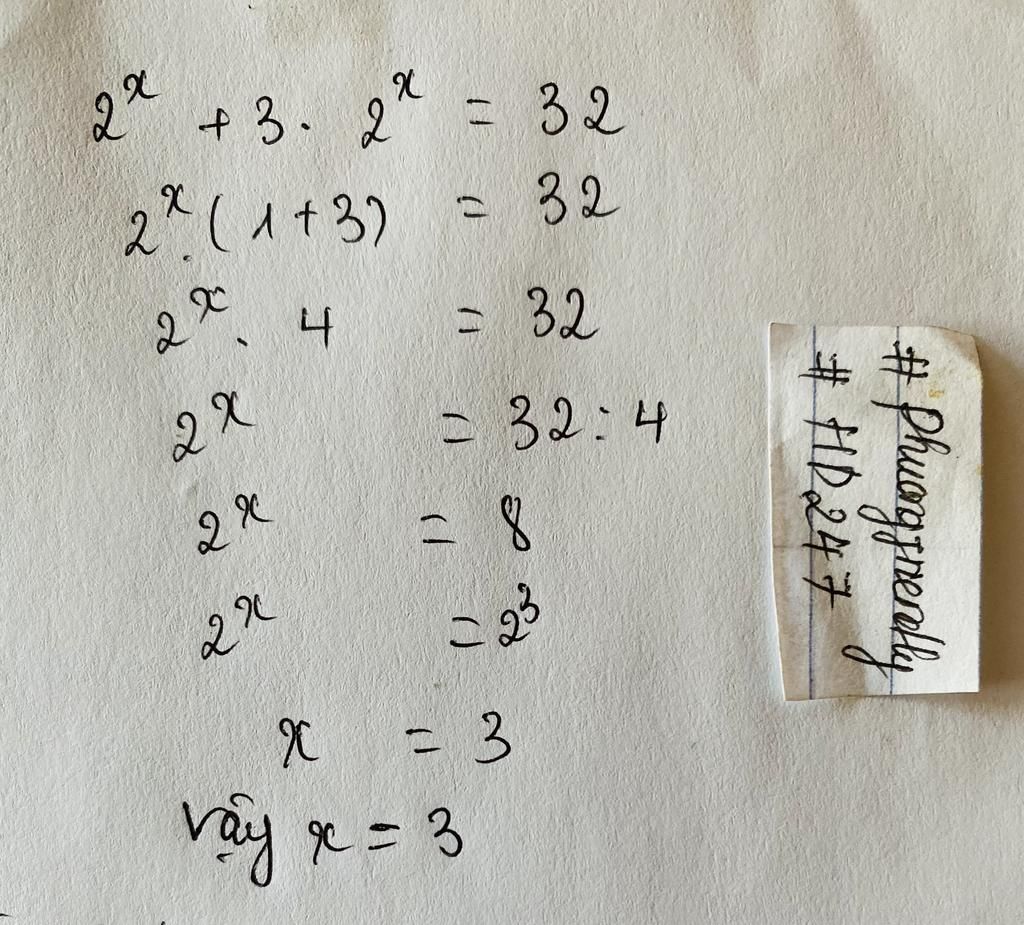 2^x + 3 . 2^x = 32
2^x . (1 + 3) = 32
2^x . 4 = 32
2^x = 32 : 4
2^x = 8
2^x = 2^3
x = 3
Vậy x = 3
# HD247